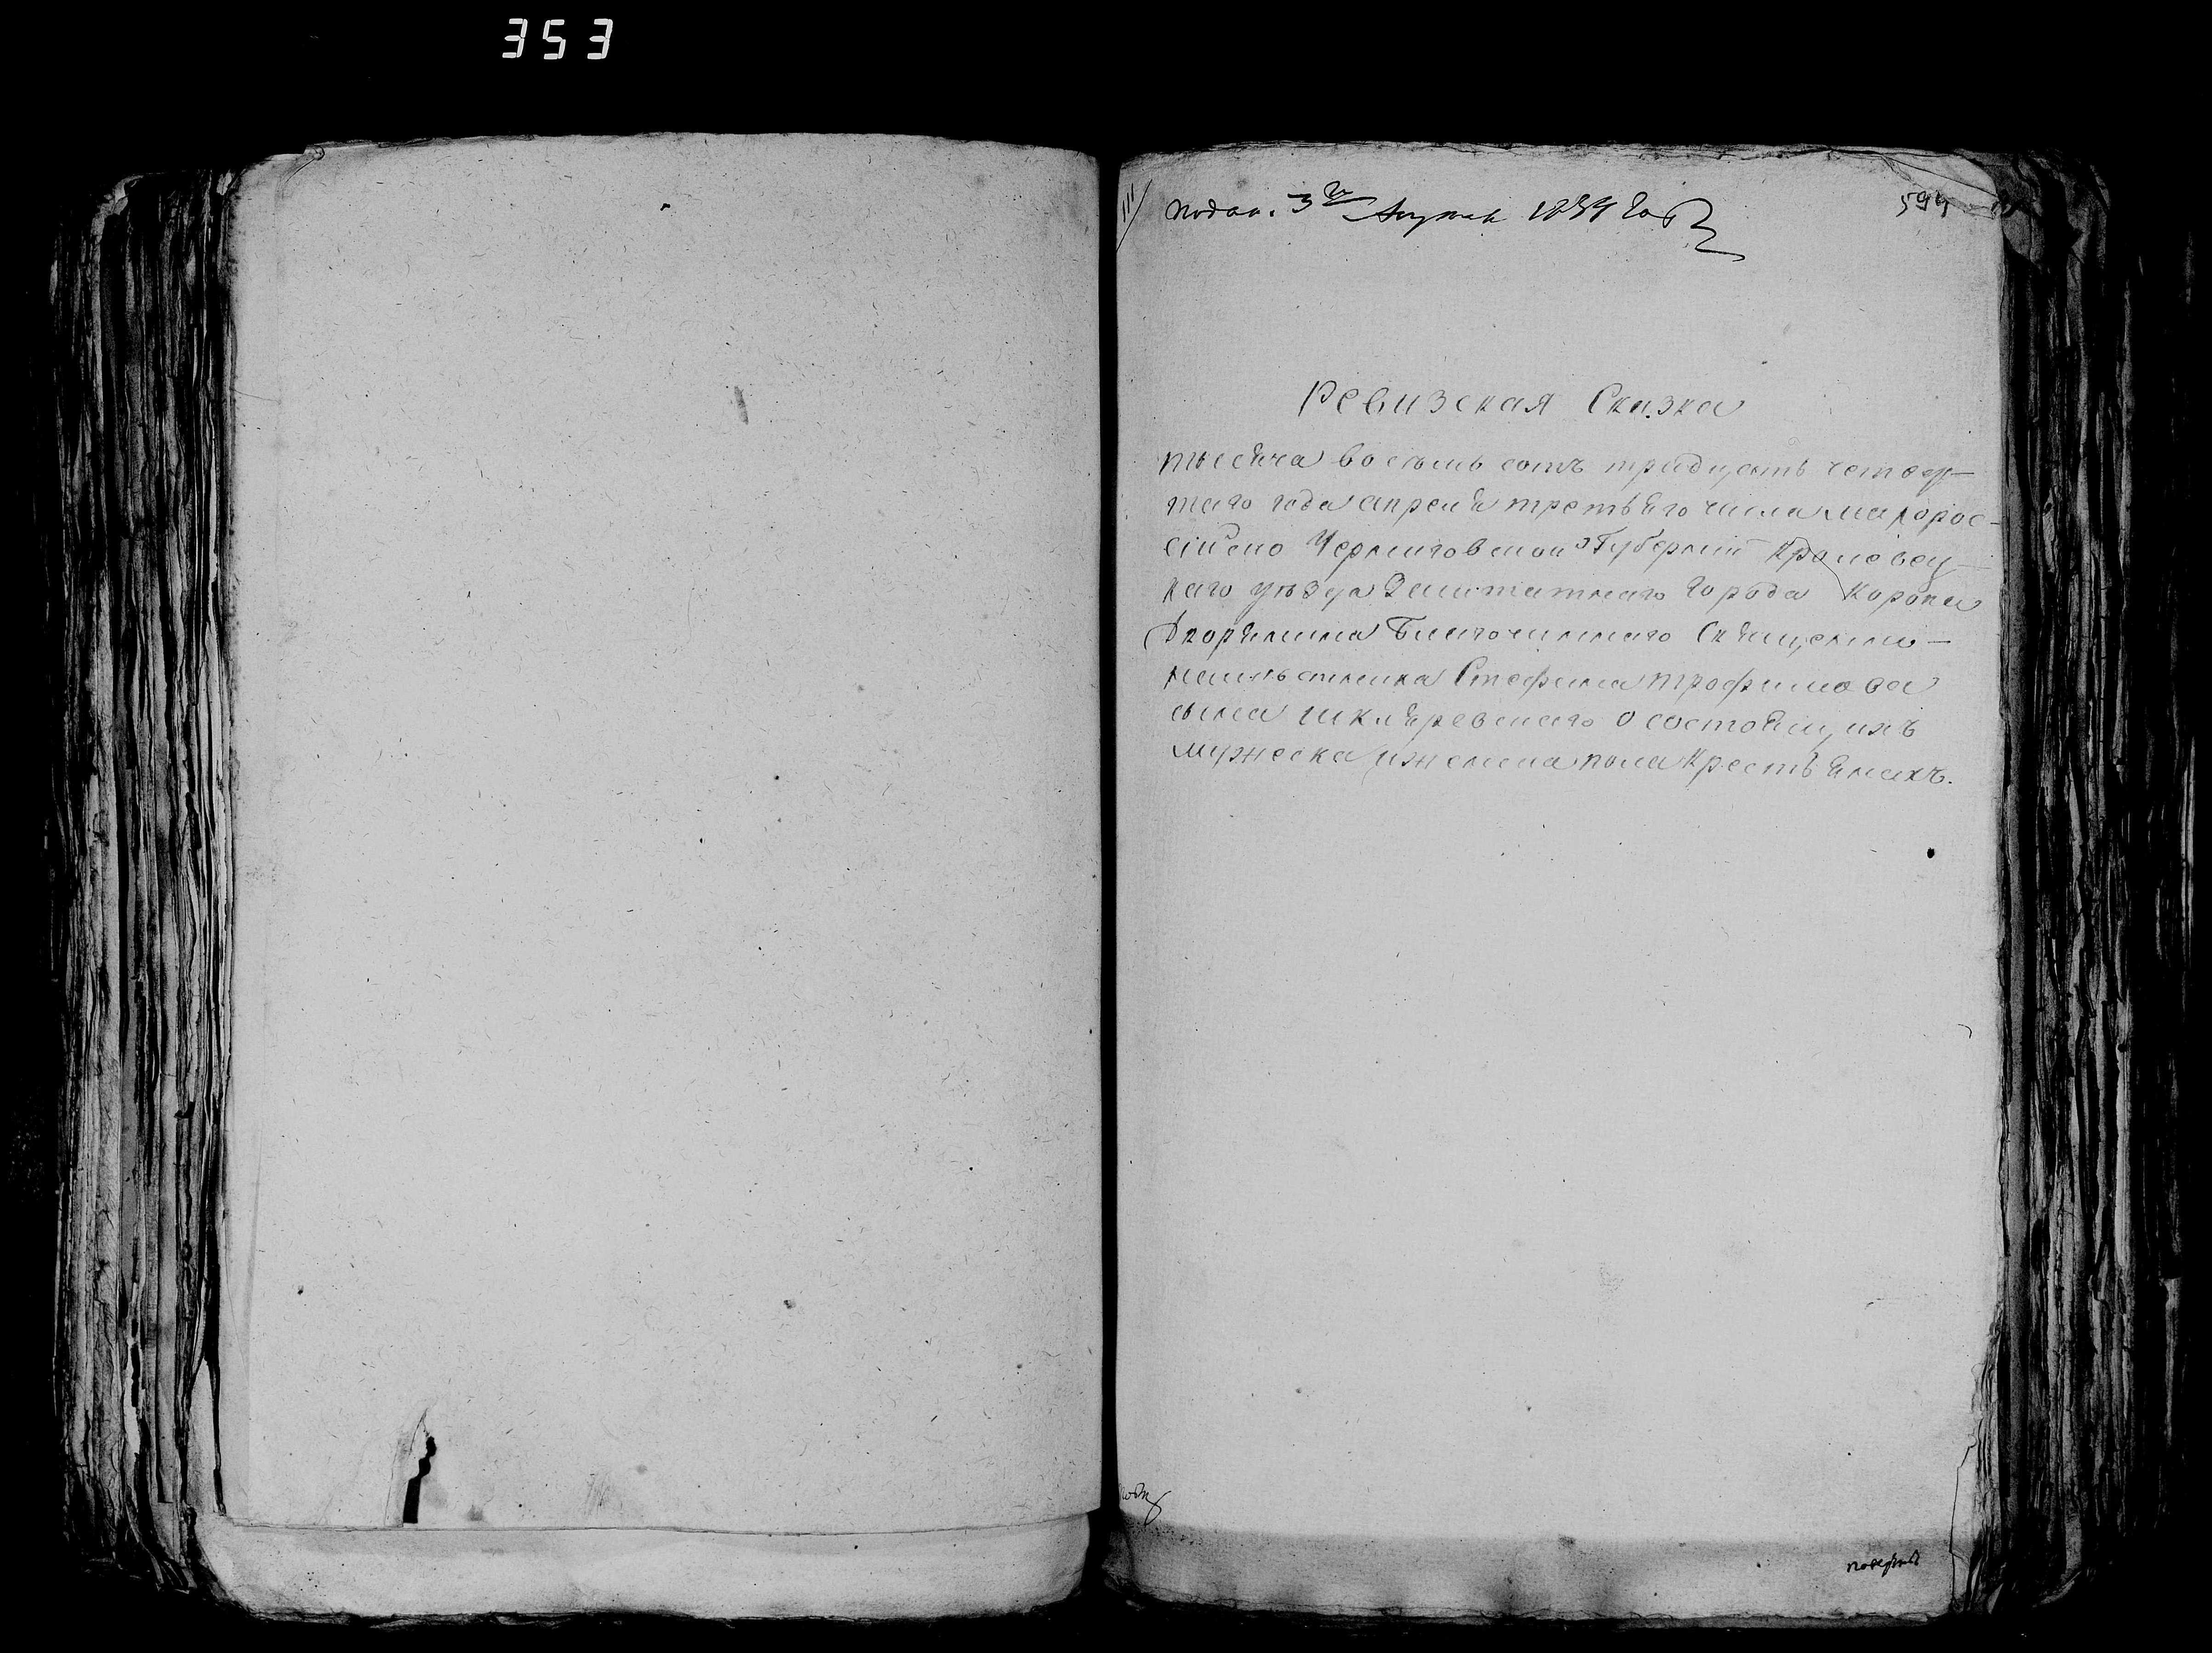 353
111/ Подан. 3го Апреля 1834 года
594
Ревизская Сказка
тысяча восемь сотъ тридцать четвер-
таго года апреля третьяго числа малорос-
сiйско Черниговской Губернии Кролевец-
каго уезда Заштатнаго города Коропа
Дворянина Благочиннаго Священно-
намѣстника Стефана трофимова
сына шкляревскаго о состоящихъ
мужеска и женска пола Крестьянахъ.